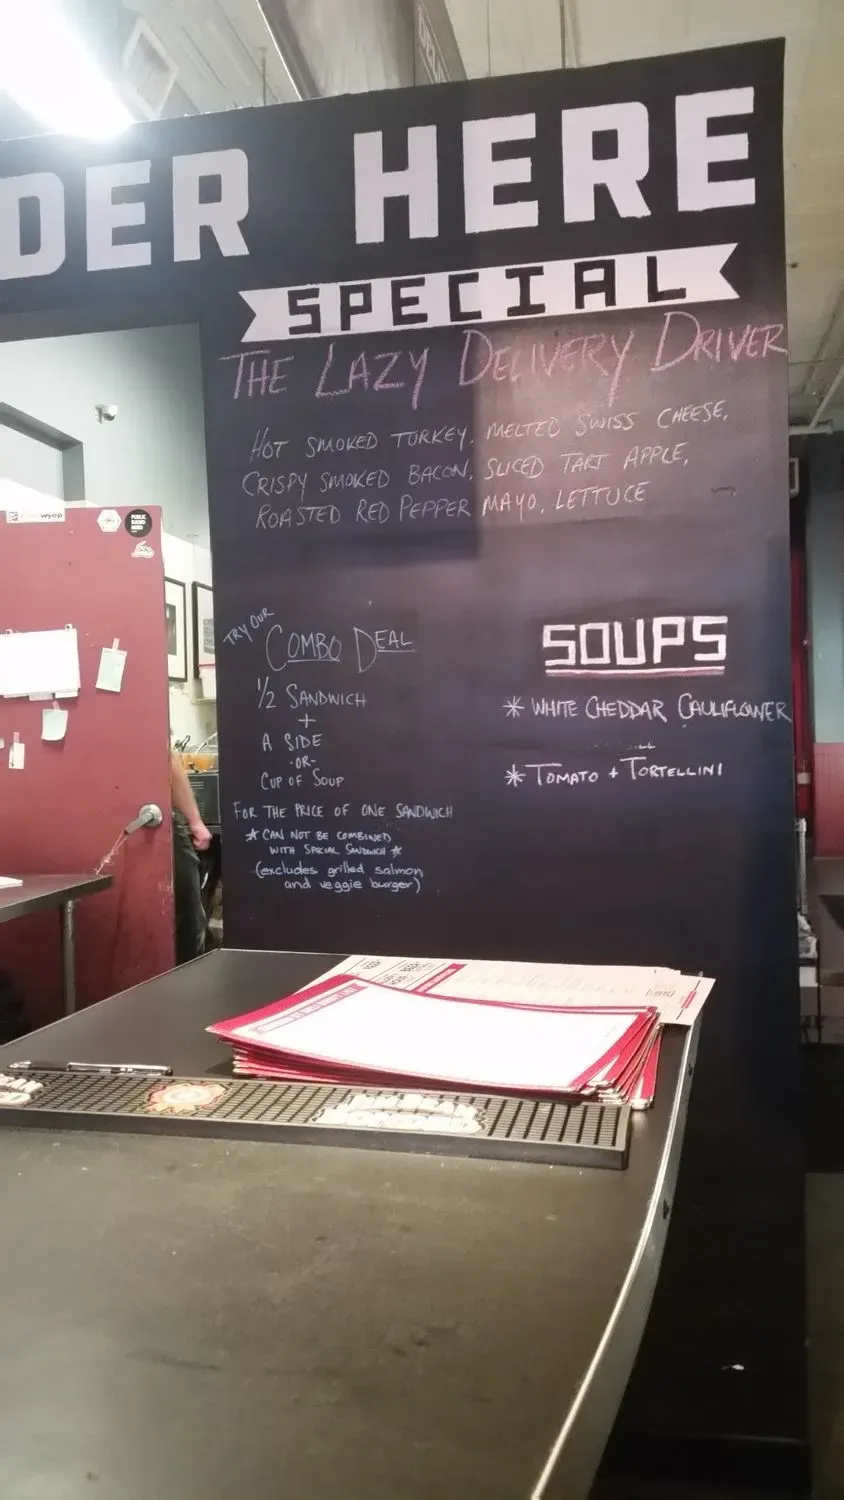 DER HERE
SPECIAL
THE LAZY DELIVERY DRIVER
HOT SMOKED TURKEY, MELTED SWISS CHEESE,
CRISPY SMOKED BACON, SLICED TART APPLE,
ROASTED RED PEPPER MAYO, LETTUCE
TRY OUR
COMBO DEAL
1/2 SANDWICH
+
A SIDE
-OR-
CUP OF SOUP
FOR THE PRICE OF ONE SANDWICH
* CAN NOT BE COMBINED
WITH SPECIAL SANDWICH *
(excludes grilled salmon
and veggie burger)
SOUPS
* WHITE CHEDDAR CAULIFLOWER
* TOMATO + TORTELLINI
wyep
PUBLIC
RADIO
NERD